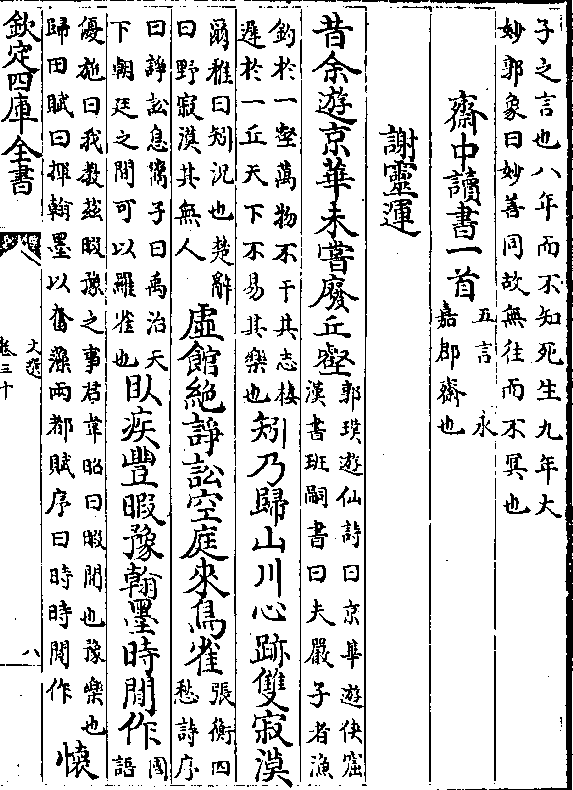 子之言也八年而不知死生九年大
妙郭象曰妙善同故無往而不冥也
齋中讀書一首
五言永
嘉郡齋也
謝靈運
昔余遊京華未嘗廢丘壑
郭璞遊仙詩曰京華遊俠窟
漢書班嗣書曰夫嚴子者漁
釣於一壑萬物不干其志棲
遲於一丘天下不易其樂也
矧乃歸山川心跡雙寂漠
爾雅曰矧況也楚辭
曰野寂漠其無人
虛館絶諍訟空庭來鳥雀
張衡四
愁詩序
曰諍訟息鬻子曰禹治天
下朝廷之間可以羅雀也
臥疾豐暇豫翰墨時間作
國
語
優施曰我教茲暇豫之事君韋昭曰暇閒也豫樂也
歸田賦曰揮翰墨以奮藻兩都賦序曰時時間作
懷
欽定四庫全書
文選
卷三十
八